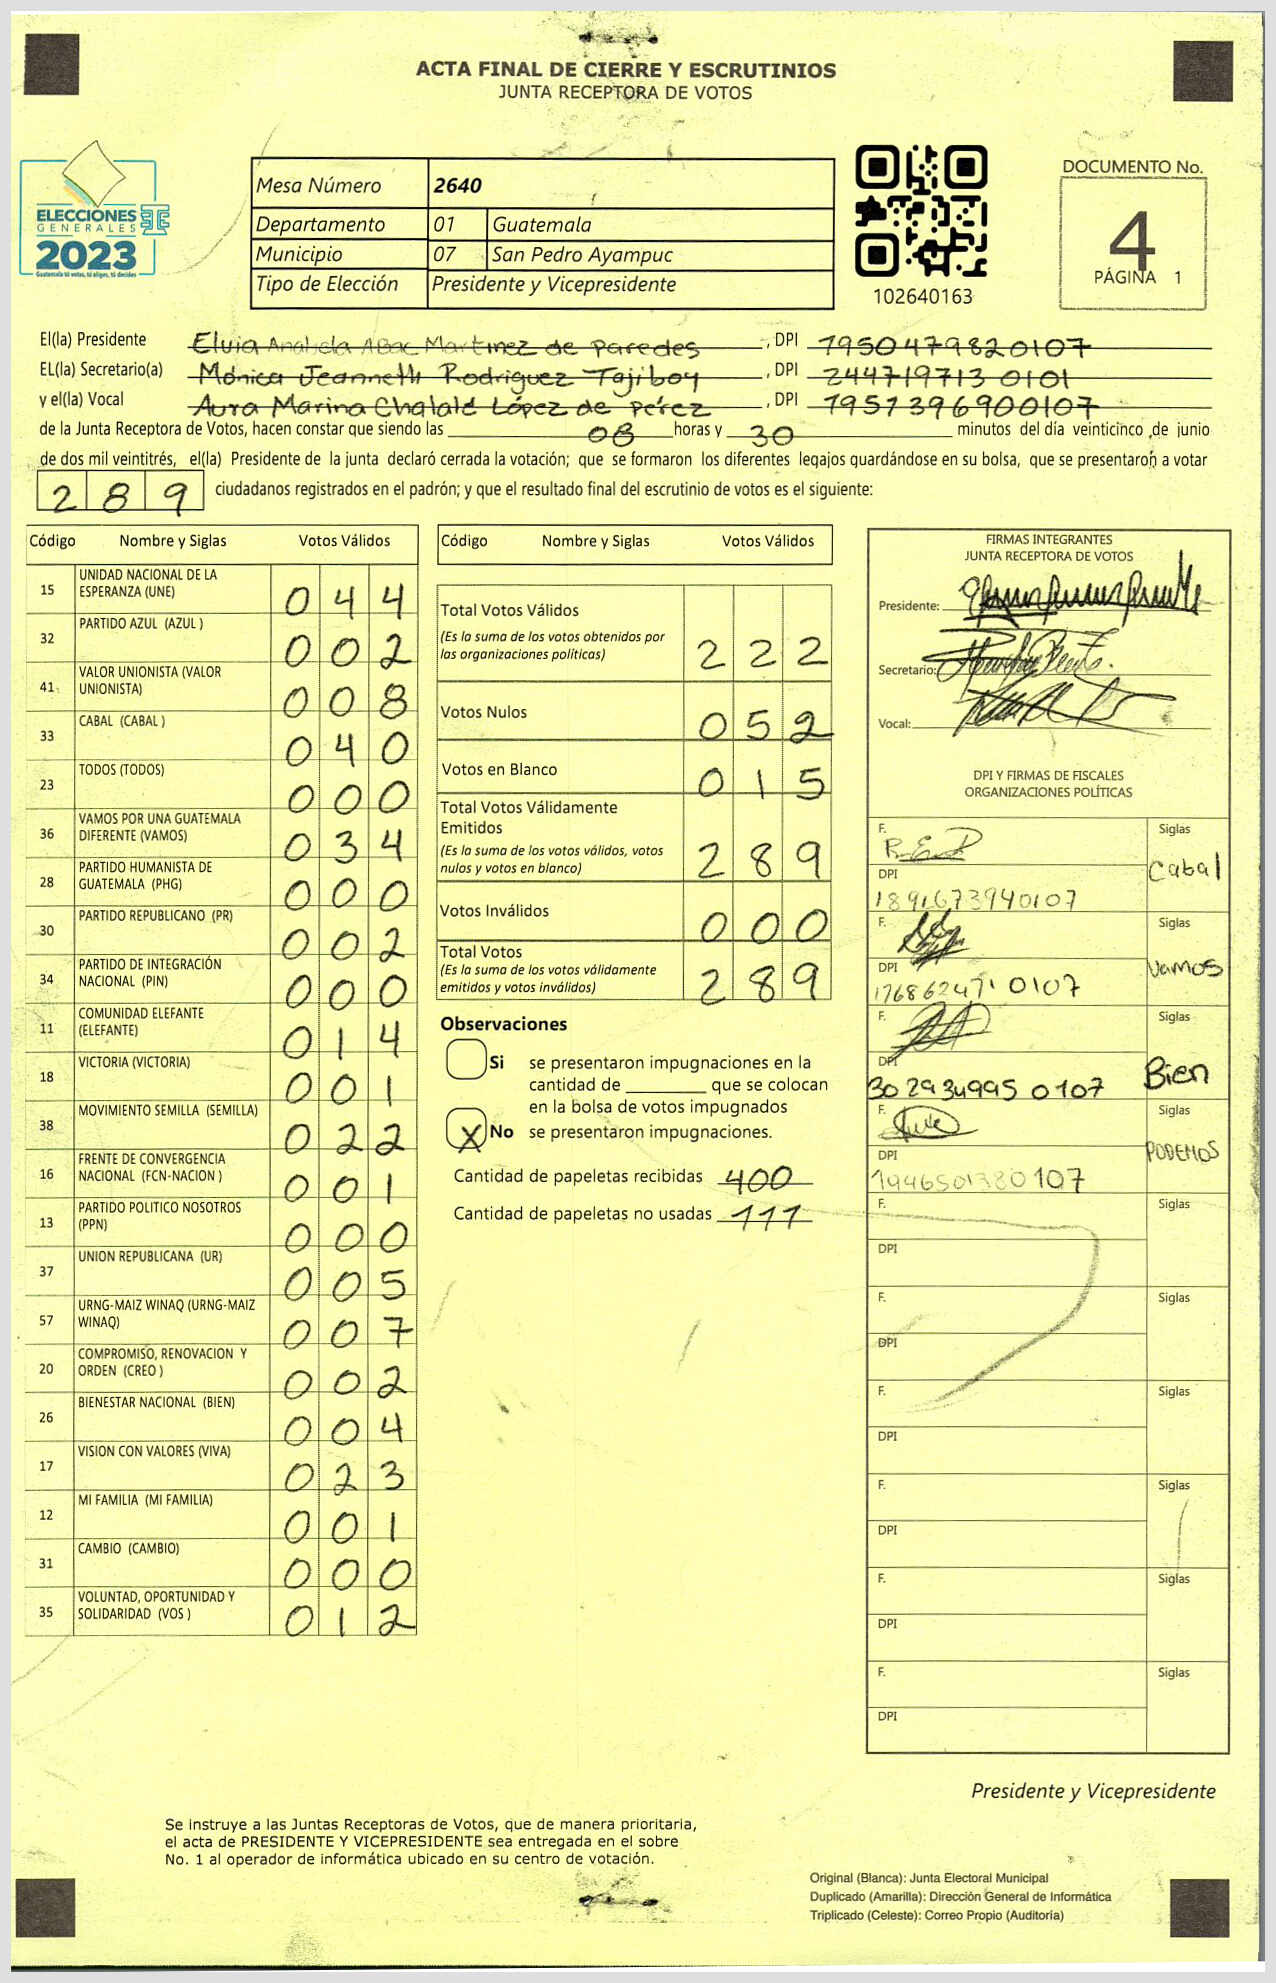 ACTA FINAL DE CIERRE Y ESCRUTINIOS
JUNTA RECEPTORA DE VOTOS
ELECCIONES
GENERALES
2023
Guatemala tú votas, tú eliges, tú decides
Mesa Número 2640
Departamento 01 Guatemala
Municipio 07 San Pedro Ayampuc
Tipo de Elección Presidente y Vicepresidente
102640163
DOCUMENTO No.
4
PÁGINA 1
El(la) Presidente Elvia Anabela Abac Martinez de Paredes , DPI 1950479820107
EL(la) Secretario(a) Mónica Jeanneth Rodriguez Tajiboy , DPI 244719713 0101
y el(la) Vocal Aura Marina Chalalé López de Pérez , DPI 1951396900107
de la Junta Receptora de Votos, hacen constar que siendo las 08 horas y 30 minutos del día veinticinco de junio
de dos mil veintitrés, el(la) Presidente de la junta declaró cerrada la votación; que se formaron los diferentes legajos guardándose en su bolsa, que se presentaron a votar
289 ciudadanos registrados en el padrón; y que el resultado final del escrutinio de votos es el siguiente:
Código Nombre y Siglas Votos Válidos
15 UNIDAD NACIONAL DE LA
ESPERANZA (UNE) 044
32 PARTIDO AZUL (AZUL ) 002
41 VALOR UNIONISTA (VALOR
UNIONISTA) 008
33 CABAL (CABAL ) 040
23 TODOS (TODOS) 000
36 VAMOS POR UNA GUATEMALA
DIFERENTE (VAMOS) 034
28 PARTIDO HUMANISTA DE
GUATEMALA (PHG) 000
30 PARTIDO REPUBLICANO (PR) 002
34 PARTIDO DE INTEGRACIÓN
NACIONAL (PIN) 000
11 COMUNIDAD ELEFANTE
(ELEFANTE) 014
18 VICTORIA (VICTORIA) 001
38 MOVIMIENTO SEMILLA (SEMILLA) 022
16 FRENTE DE CONVERGENCIA
NACIONAL (FCN-NACION ) 001
13 PARTIDO POLITICO NOSOTROS
(PPN) 000
37 UNION REPUBLICANA (UR) 005
57 URNG-MAIZ WINAQ (URNG-MAIZ
WINAQ) 007
20 COMPROMISO, RENOVACION Y
ORDEN (CREO ) 002
26 BIENESTAR NACIONAL (BIEN) 004
17 VISION CON VALORES (VIVA) 023
12 MI FAMILIA (MI FAMILIA) 001
31 CAMBIO (CAMBIO) 000
35 VOLUNTAD, OPORTUNIDAD Y
SOLIDARIDAD (VOS ) 012
Código Nombre y Siglas Votos Válidos
Total Votos Válidos
(Es la suma de los votos obtenidos por
las organizaciones políticas) 222
Votos Nulos 052
Votos en Blanco 015
Total Votos Válidamente
Emitidos
(Es la suma de los votos válidos, votos
nulos y votos en blanco) 289
Votos Inválidos 000
Total Votos
(Es la suma de los votos válidamente
emitidos y votos inválidos) 289
Observaciones
Si se presentaron impugnaciones en la
cantidad de que se colocan
en la bolsa de votos impugnados
X No se presentaron impugnaciones.
Cantidad de papeletas recibidas 400
Cantidad de papeletas no usadas 111
FIRMAS INTEGRANTES
JUNTA RECEPTORA DE VOTOS
Presidente:
Secretario:
Vocal:
DPI Y FIRMAS DE FISCALES
ORGANIZACIONES POLÍTICAS
F. Siglas
Cabal
DPI
1891673940107
F. Siglas
Vamos
DPI
1768624710107
F. Siglas
Bien
DPI
302934995 0107
F. Siglas
PODEMOS
DPI
1946501380107
F. Siglas
DPI
F. Siglas
DPI
F. Siglas
DPI
F. Siglas
DPI
F. Siglas
DPI
F. Siglas
DPI
Presidente y Vicepresidente
Se instruye a las Juntas Receptoras de Votos, que de manera prioritaria,
el acta de PRESIDENTE Y VICEPRESIDENTE sea entregada en el sobre
No. 1 al operador de informática ubicado en su centro de votación.
Original (Blanca): Junta Electoral Municipal
Duplicado (Amarilla): Dirección General de Informática
Triplicado (Celeste): Correo Propio (Auditoría)